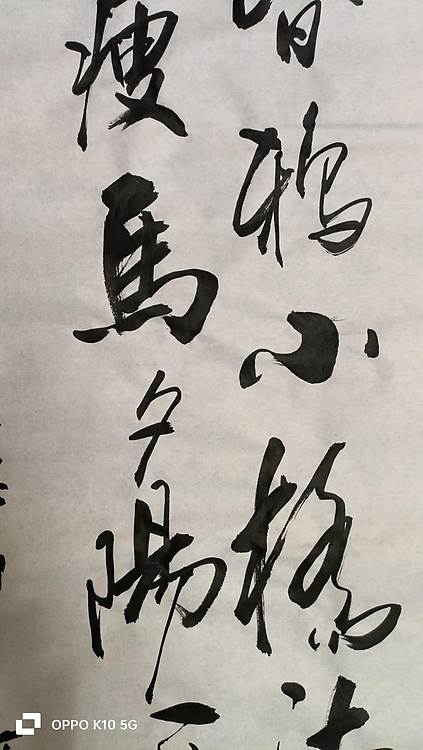 昏鸦小橋流
瘦馬夕陽西
OPPO K10 5G